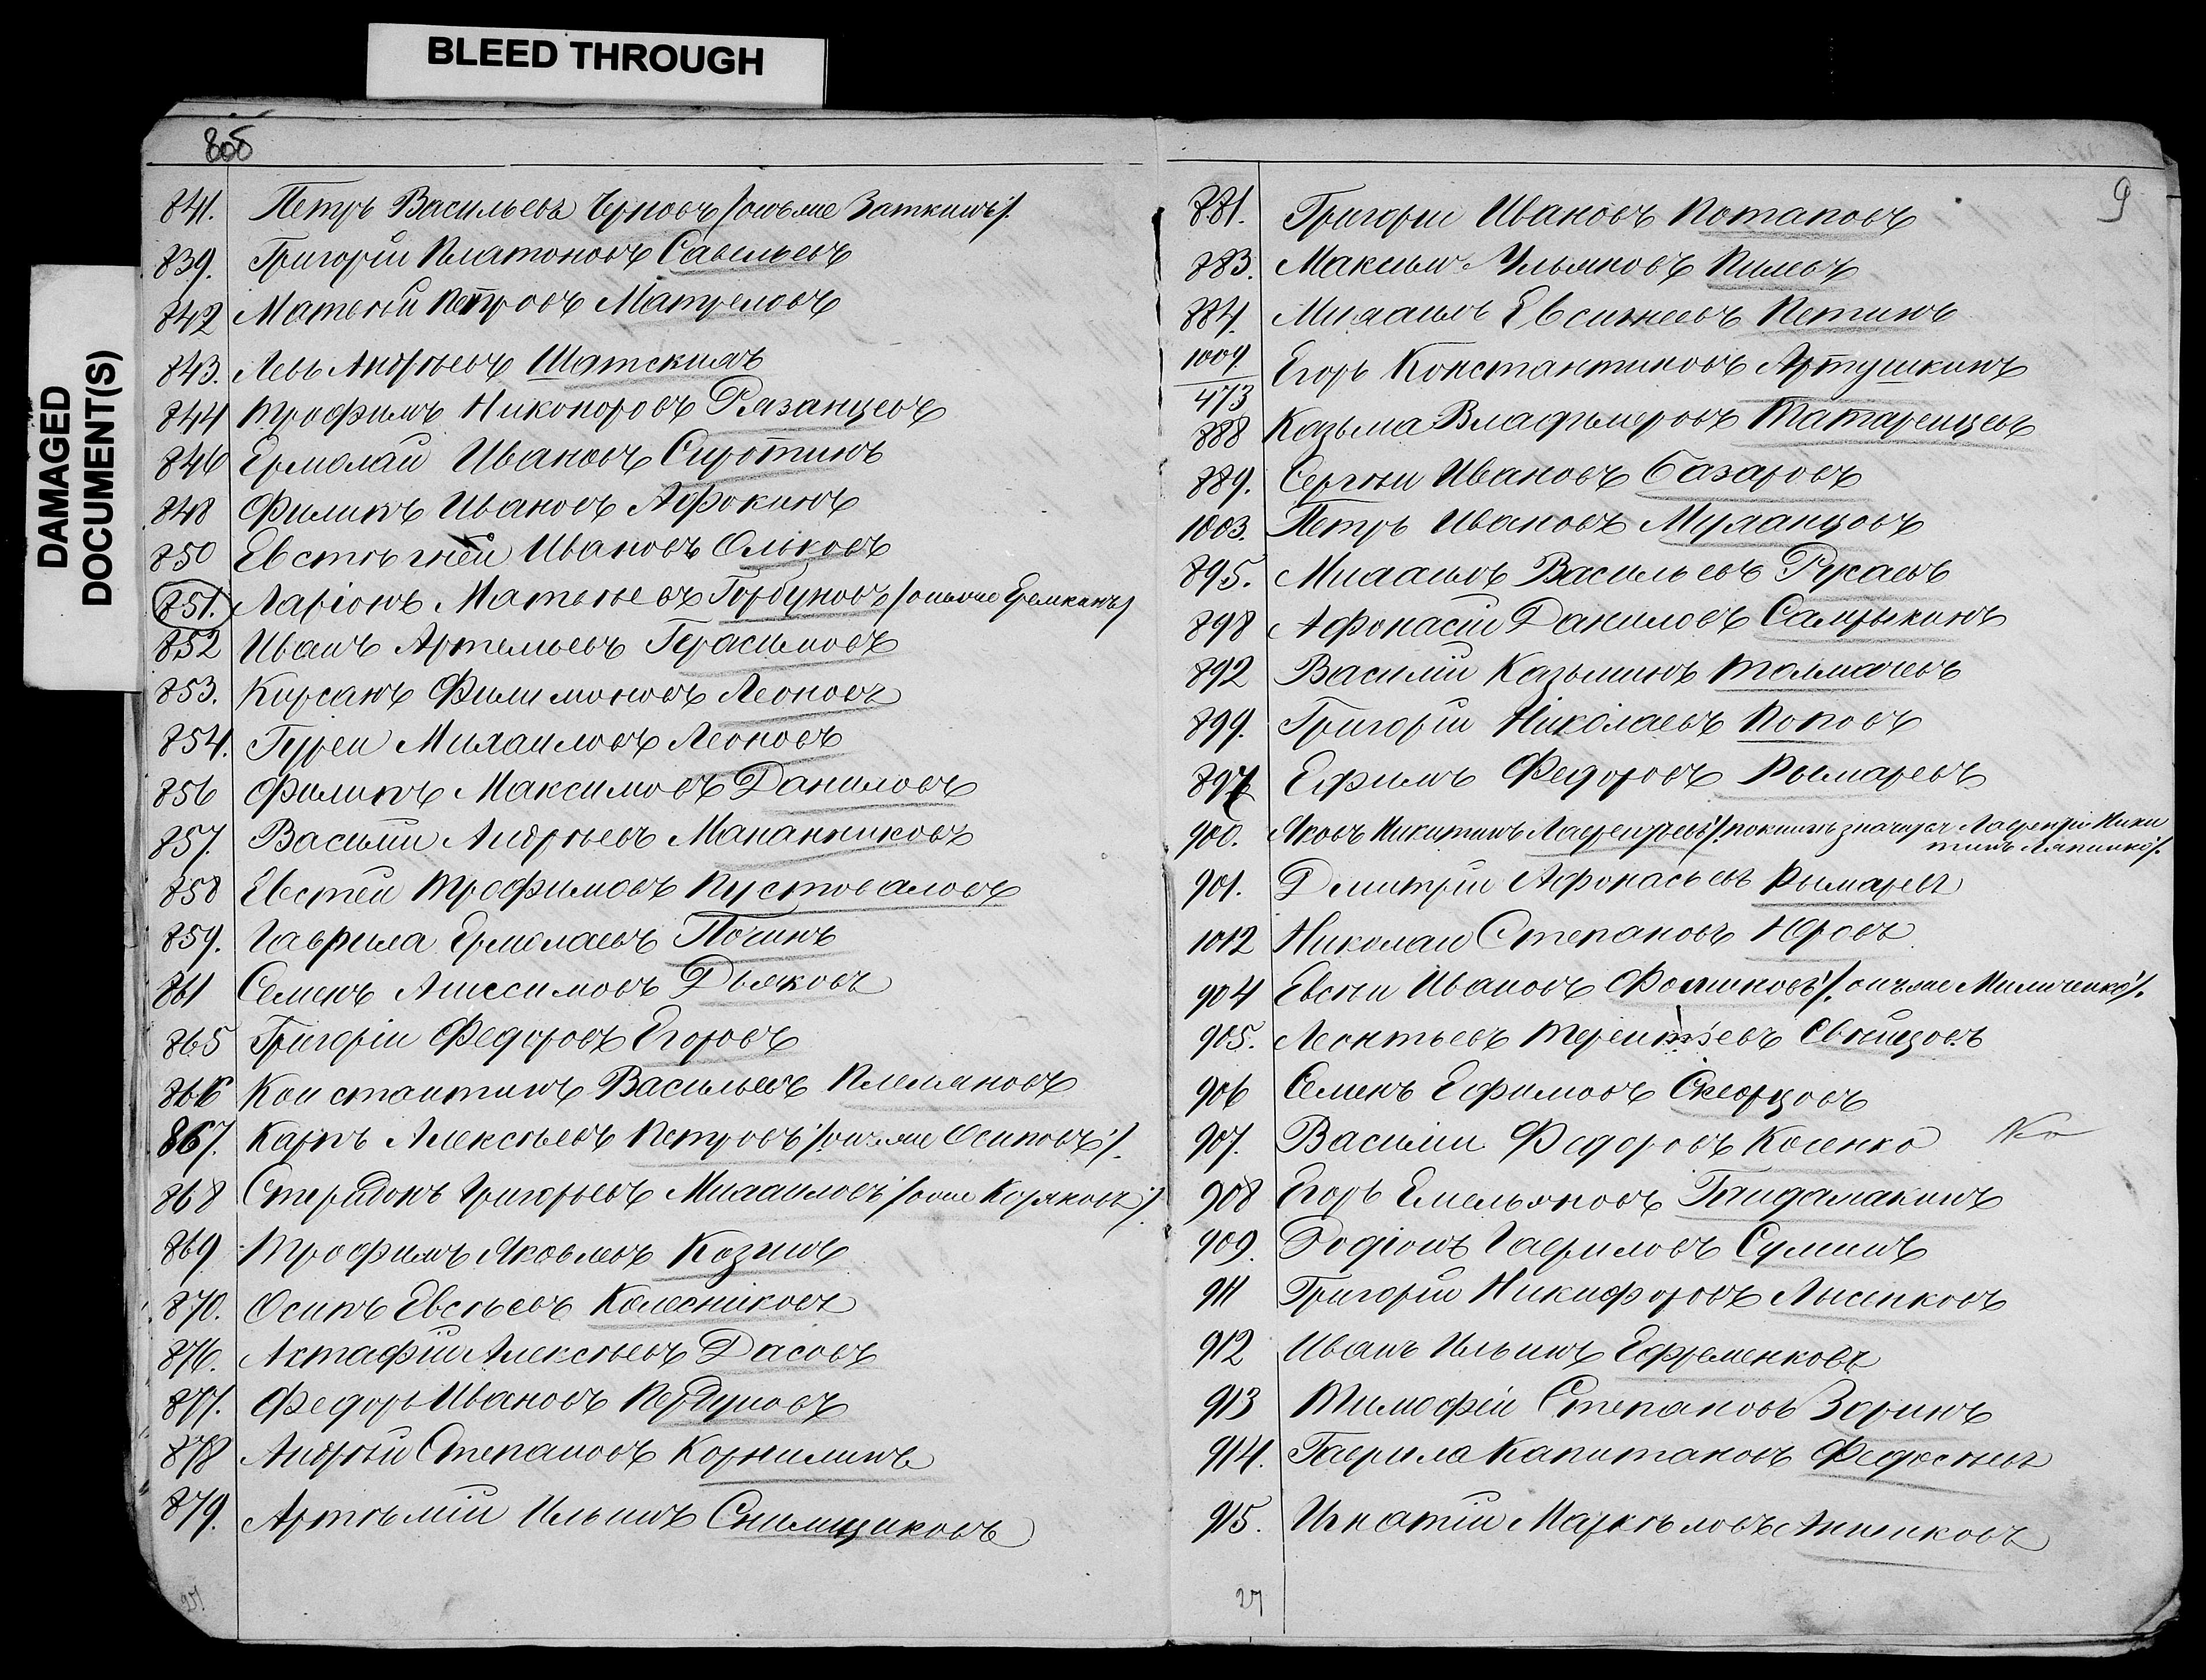 BLEED THROUGH
DAMAGED
DOCUMENT(S)
8об
841. Петръ Васильевъ Чрновъ /онъ же Заткинъ/.
839. Григорій Платоновъ Савельевъ
842 Матвѣй Петровъ Матреловъ
843. Левъ Андрѣевъ Шатскихъ
844 Трофимъ Никоноровъ Рязанцевъ
846 Ермолай Ивановъ Сиротинъ
848 Филипъ Ивановъ Афокинъ
850 Евстигнѣй Ивановъ Ольховъ
851. Ларіонъ Матвѣевъ Горбуновъ /онъ же Еремкинъ/
852 Иванъ Артемьевъ Герасимовъ
853. Кирсанъ Филимоновъ Леоновъ
854. Гурей Михаиловъ Леоновъ
856 Филипъ Максимовъ Даниловъ
857. Василій Андрѣевъ Мананниковъ
858 Евстей Трофимовъ Пустоваловъ
859. Гаврила Ермолаевъ Починъ
861 Семенъ Анисимовъ Дьяковъ
865 Григорій Федоровъ Егоровъ
866 Константинъ Васильевъ Племяновъ
867. Карпъ Алексѣевъ Петровъ /онъ же Осиповъ/.
868 Спиридонъ Григорьевъ Михаиловъ /онъ же Коряковъ/.
869 Трофимъ Яковлевъ Козинъ
870. Осипъ Евсѣевъ Колесниковъ
876. Актафій Алексѣевъ Дасовъ
877. Федоръ Ивановъ Пердуновъ
878 Андрѣй Степановъ Корнилинъ
879. Артѣмій Ильинъ Снимщиковъ
27
9
881. Григорій Ивановъ Потаповъ
883. Максимъ Ульяновъ Пилевъ
884. Михаилъ Евсигнеевъ Петинъ
1009. Егоръ Константиновъ Артушкинъ
473
888 Козьма Владимеровъ Татаренцевъ
889. Сергѣй Ивановъ Базаровъ
1003. Петръ Ивановъ Муланцовъ
895. Михаилъ Васильевъ Русаевъ
898 Афонасій Даниловъ Самрыкинъ
892 Василій Козьминъ Толмачевъ
899. Григорій Николаевъ Поповъ
897 Ефимъ Федоровъ Рымаревъ
900. Яковъ Никитинъ Лаврентьевъ /. по книгѣ значутся Лаврентій Ники
тинъ Ляпинко/.
901. Дмитрій Афонасьевъ Рымаревъ
1012 Николай Степановъ Юровъ
904 Евсѣй Ивановъ Фоминковъ /. онъ же Миличенко/.
905. Леонтьевъ Терентьевъ Свинцовъ
906 Семенъ Ефимовъ Скворцовъ
907. Василій Федоровъ Косенко No
908 Егоръ Емельяновъ Гайдамакинъ
909. Родіонъ Гавриловъ Суминъ
911 Григорій Никифоровъ Лысенковъ
912 Иванъ Ильинъ Ефременковъ
913 Тимофей Степановъ Зоринъ
914. Гаврила Капитановъ Федосѣевъ
915. Игнатій Маркѣловъ Аниенковъ
27